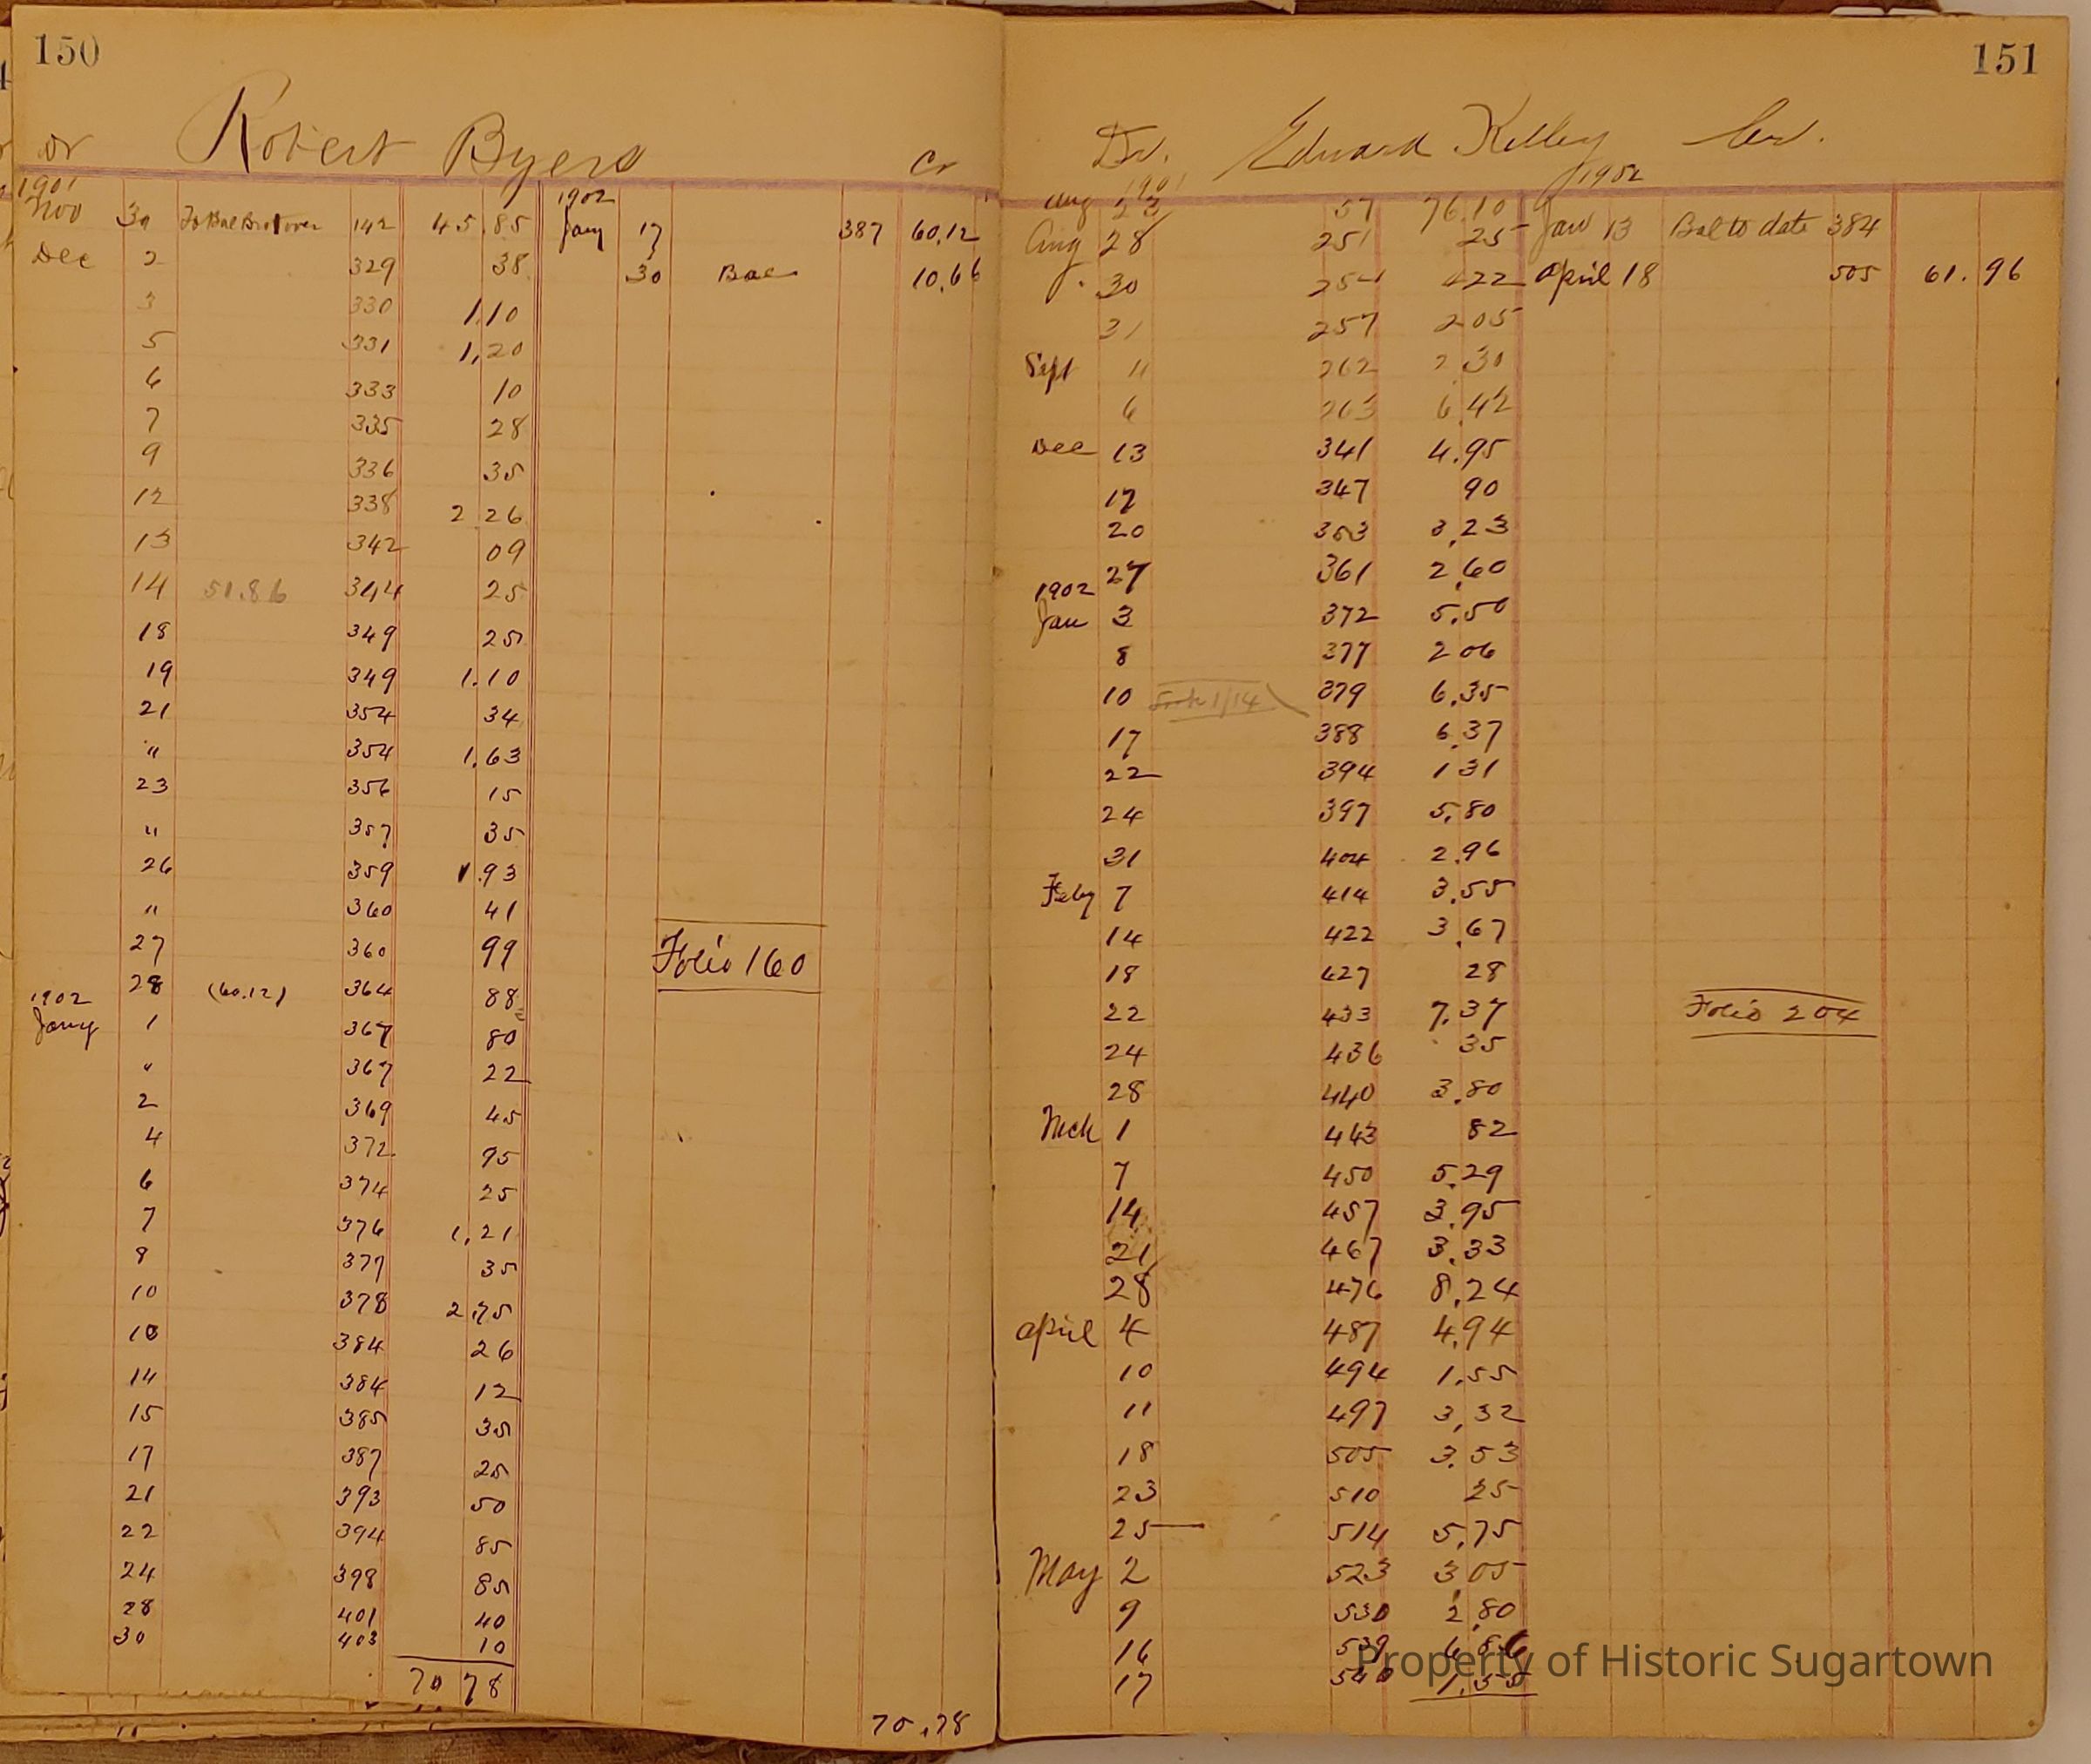 150
Dr Robert Byers Cr
1901
Nov 30 To Bal Brot over 142 45.85
Dec 2 329 38
3 330 1.10
5 331 1,20
6 333 10
7 335 28
9 336 35
12 338 2 26
13 342 09
14 51.86 344 25
18 349 25
19 349 1.10
21 354 34
" 354 1,63
23 356 15
" 357 35
26 359 .93
" 360 41
27 360 99
28 (60.12) 364 88
1902
Jany 1 367 80
" 367 22
2 369 45
4 372 95
6 374 25
7 376 1,21
8 377 35
10 378 2.75
10 384 26
14 384 12
15 385 35
17 387 25
21 393 50
22 394 85
24 398 85
28 401 40
30 403 10
70 78
1902
Jany 17 387 60,12
30 Bal 10.66
Folio 160
70,78
151
Dr. Edward Kelley Cr.
1901
Aug 23 57 76.10
Aug 28 251 25
30 254 422
31 257 205
Sept " 262 2 30
6 263 6,42
Dec 13 341 4.95
17 347 90
20 353 3,23
27 361 2,60
1902
Jan 3 372 5.50
8 377 2 06
10 1/14 379 6.35
17 388 6.37
22 394 1 31
24 397 5,80
31 404 2.96
Feby 7 414 3.55
14 422 3.67
18 427 28
22 433 7.37
24 436 35
28 440 3.80
Mch 1 443 82
7 450 5.29
14 457 3.95
21 467 3.33
28 476 8.24
April 4 487 4.94
10 494 1.55
11 497 3,32
18 505 3.53
23 510 25
25 514 5,75
May 2 523 3,05
9 530 2,80
16 539 6,86
17 540 1.55
1902
Jan 13 Bal to date 384
April 18 505 61.96
Folio 204
Property of Historic Sugartown